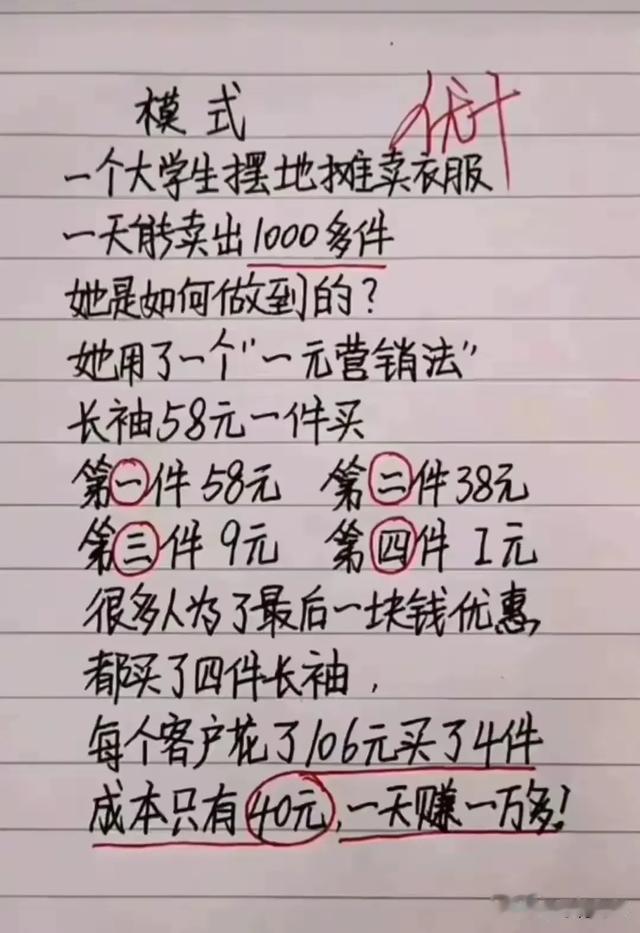 模式
优+
一个大学生摆地摊卖衣服
一天能卖出1000多件
她是如何做到的？
她用了一个"一元营销法"
长袖58元一件买
第一件58元 第二件38元
第三件9元 第四件1元
很多人为了最后一块钱优惠
都买了四件长袖，
每个客户花了106元买了4件
成本只有40元，一天赚一万多！